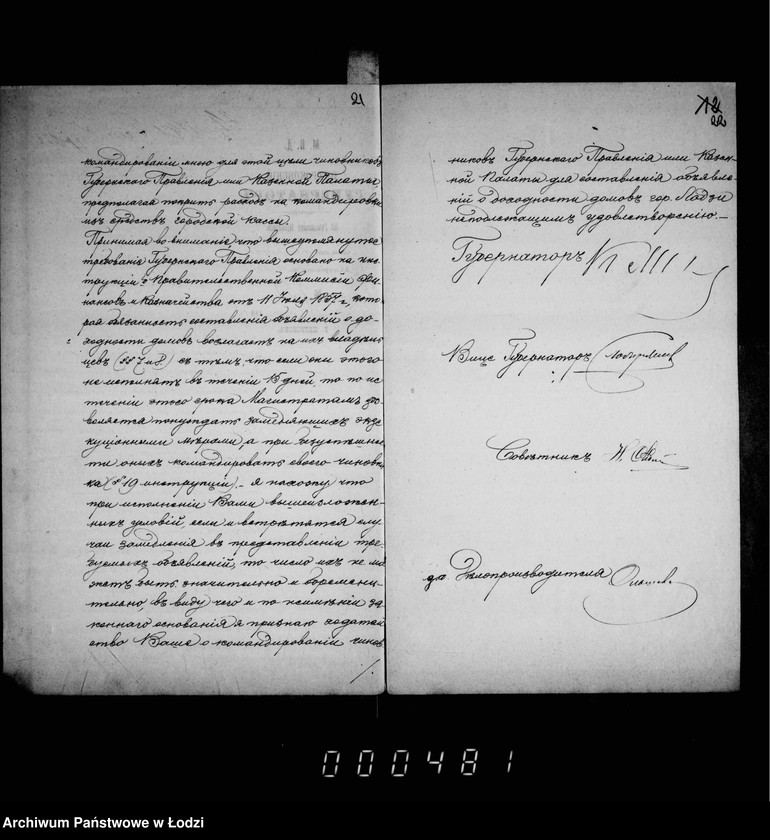 21
командированіи мною для этой цѣли чиновниковъ
Губернскаго Правленія или Казенной Палаты
предполагая покрыть расходъ на командировки
изъ средствъ городской кассы.
Принимая во вниманіе, что вышеупомянутое
требованіе Губернскаго Правленія основано на инс
трукціи Правительственной Коммисіи Фи-
нансовъ и Казначейства отъ 11 Іюля г., кото
рая обязанность составленія объявленій о до-
ходности домовъ возлагаетъ на ихъ владѣль
цевъ съ тѣмъ, что если они этого
не исполнятъ въ теченіи 15 дней, то по ис
теченіи этого срока Магистратамъ доз
воляется понуждать замедляющихъ экзе
куціонными мѣрами, а при безуспѣшнос
ти оныхъ командировать своего чиновни
ка (§ 19 инструкціи) - я нахожу что
при исполненіи Вами вышеизложен-
ныхъ условій, если и встрѣтятся слу
чаи замедленія въ представленіи тре
буемыхъ объявленій, то число ихъ не мо
жетъ быть значительно и обремени-
тельно, въ виду чего и по неимѣнію за
коннаго основанія я признаю ходатай
ство Ваше о командированіи чинов
22
никовъ Губернскаго Правленія или Казен-
ной Палаты для составленія объявле-
ній о доходности домовъ гор. Лодзи
неподлежащимъ удовлетворенію.-
Губернаторъ
Вице Губернаторъ
Совѣтникъ
Дѣлопроизводителя
000481
Archiwum Państwowe w Łodzi